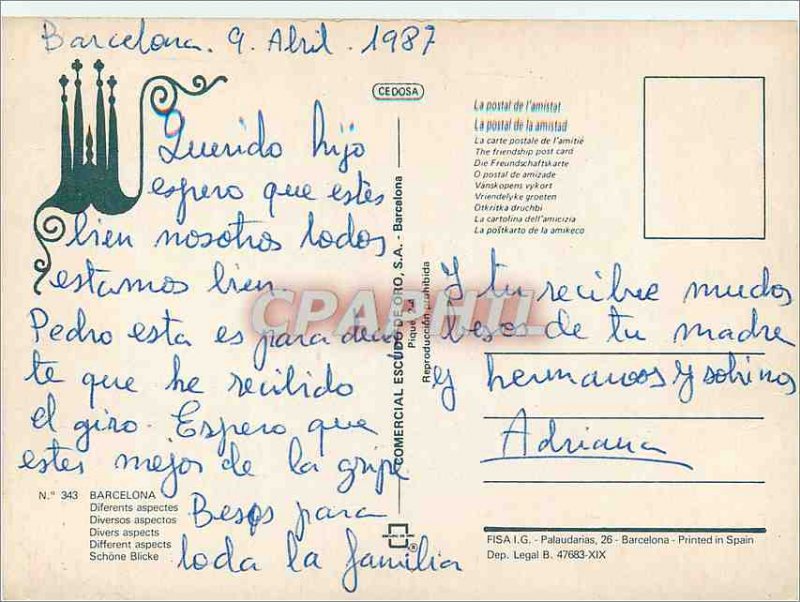 Barcelona. 9. Abril. 1987
Querido hijo
espero que estes
bien nosotros todos
estamos bien.
Pedro esta es para decir
te que he recibido
el giro. Espero que
estes mejor de la gripe
Besos para
toda la familia
Nº 343 BARCELONA
Diferents aspectes
Diversos aspectos
Divers aspects
Different aspects
Schöne Blicke
CEDOSA
COMERCIAL ESCUDO DE ORO, S.A. - Barcelona
Reproducción prohibida
CPARPHIL
La postal de l'amistat
La postal de la amistad
La carte postale de l'amitié
The friendship post card
Die Freundschaftskarte
O postal de amizade
Vänskopens vykort
Vriendelyke groeten
Otkritka druchbi
La cartolina dell'amicizia
La poŝtkarto de la amikeco
Y tu recibe muchos
besos de tu madre
y hermanos y sobinos
Adriana
FISA I.G. - Palaudarias, 26 - Barcelona - Printed in Spain
Dep. Legal B. 47683-XIX